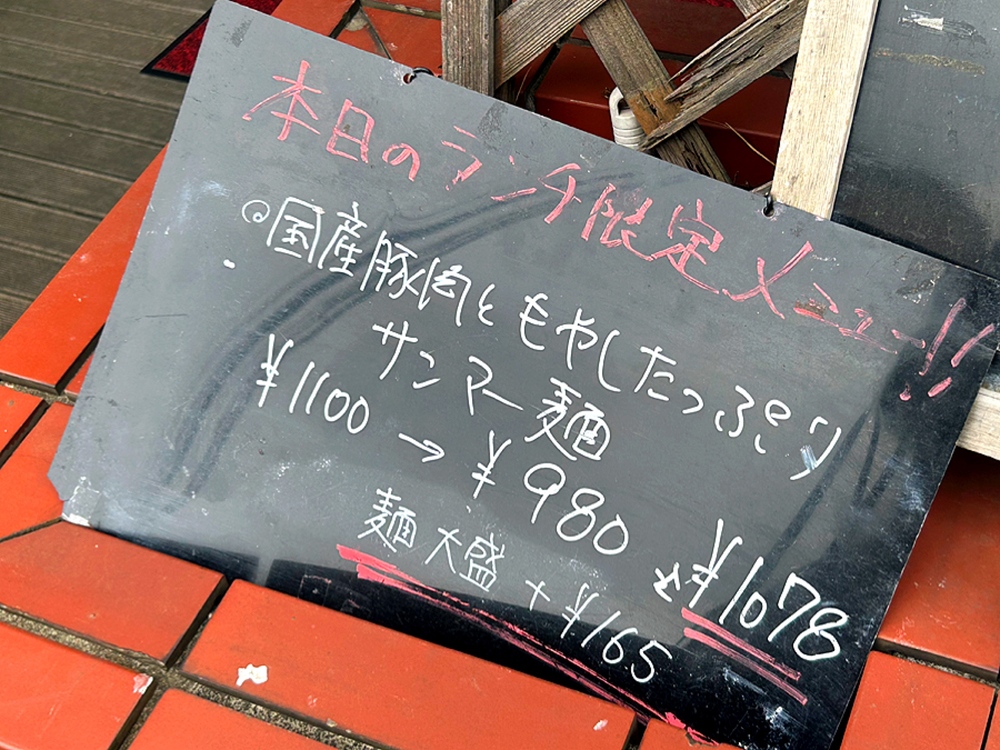 本日のランチ限定メニュー!!
◎国産豚肉ともやしたっぷり
サンマー麺
¥1100→¥980
¥1078
麺大盛+¥165